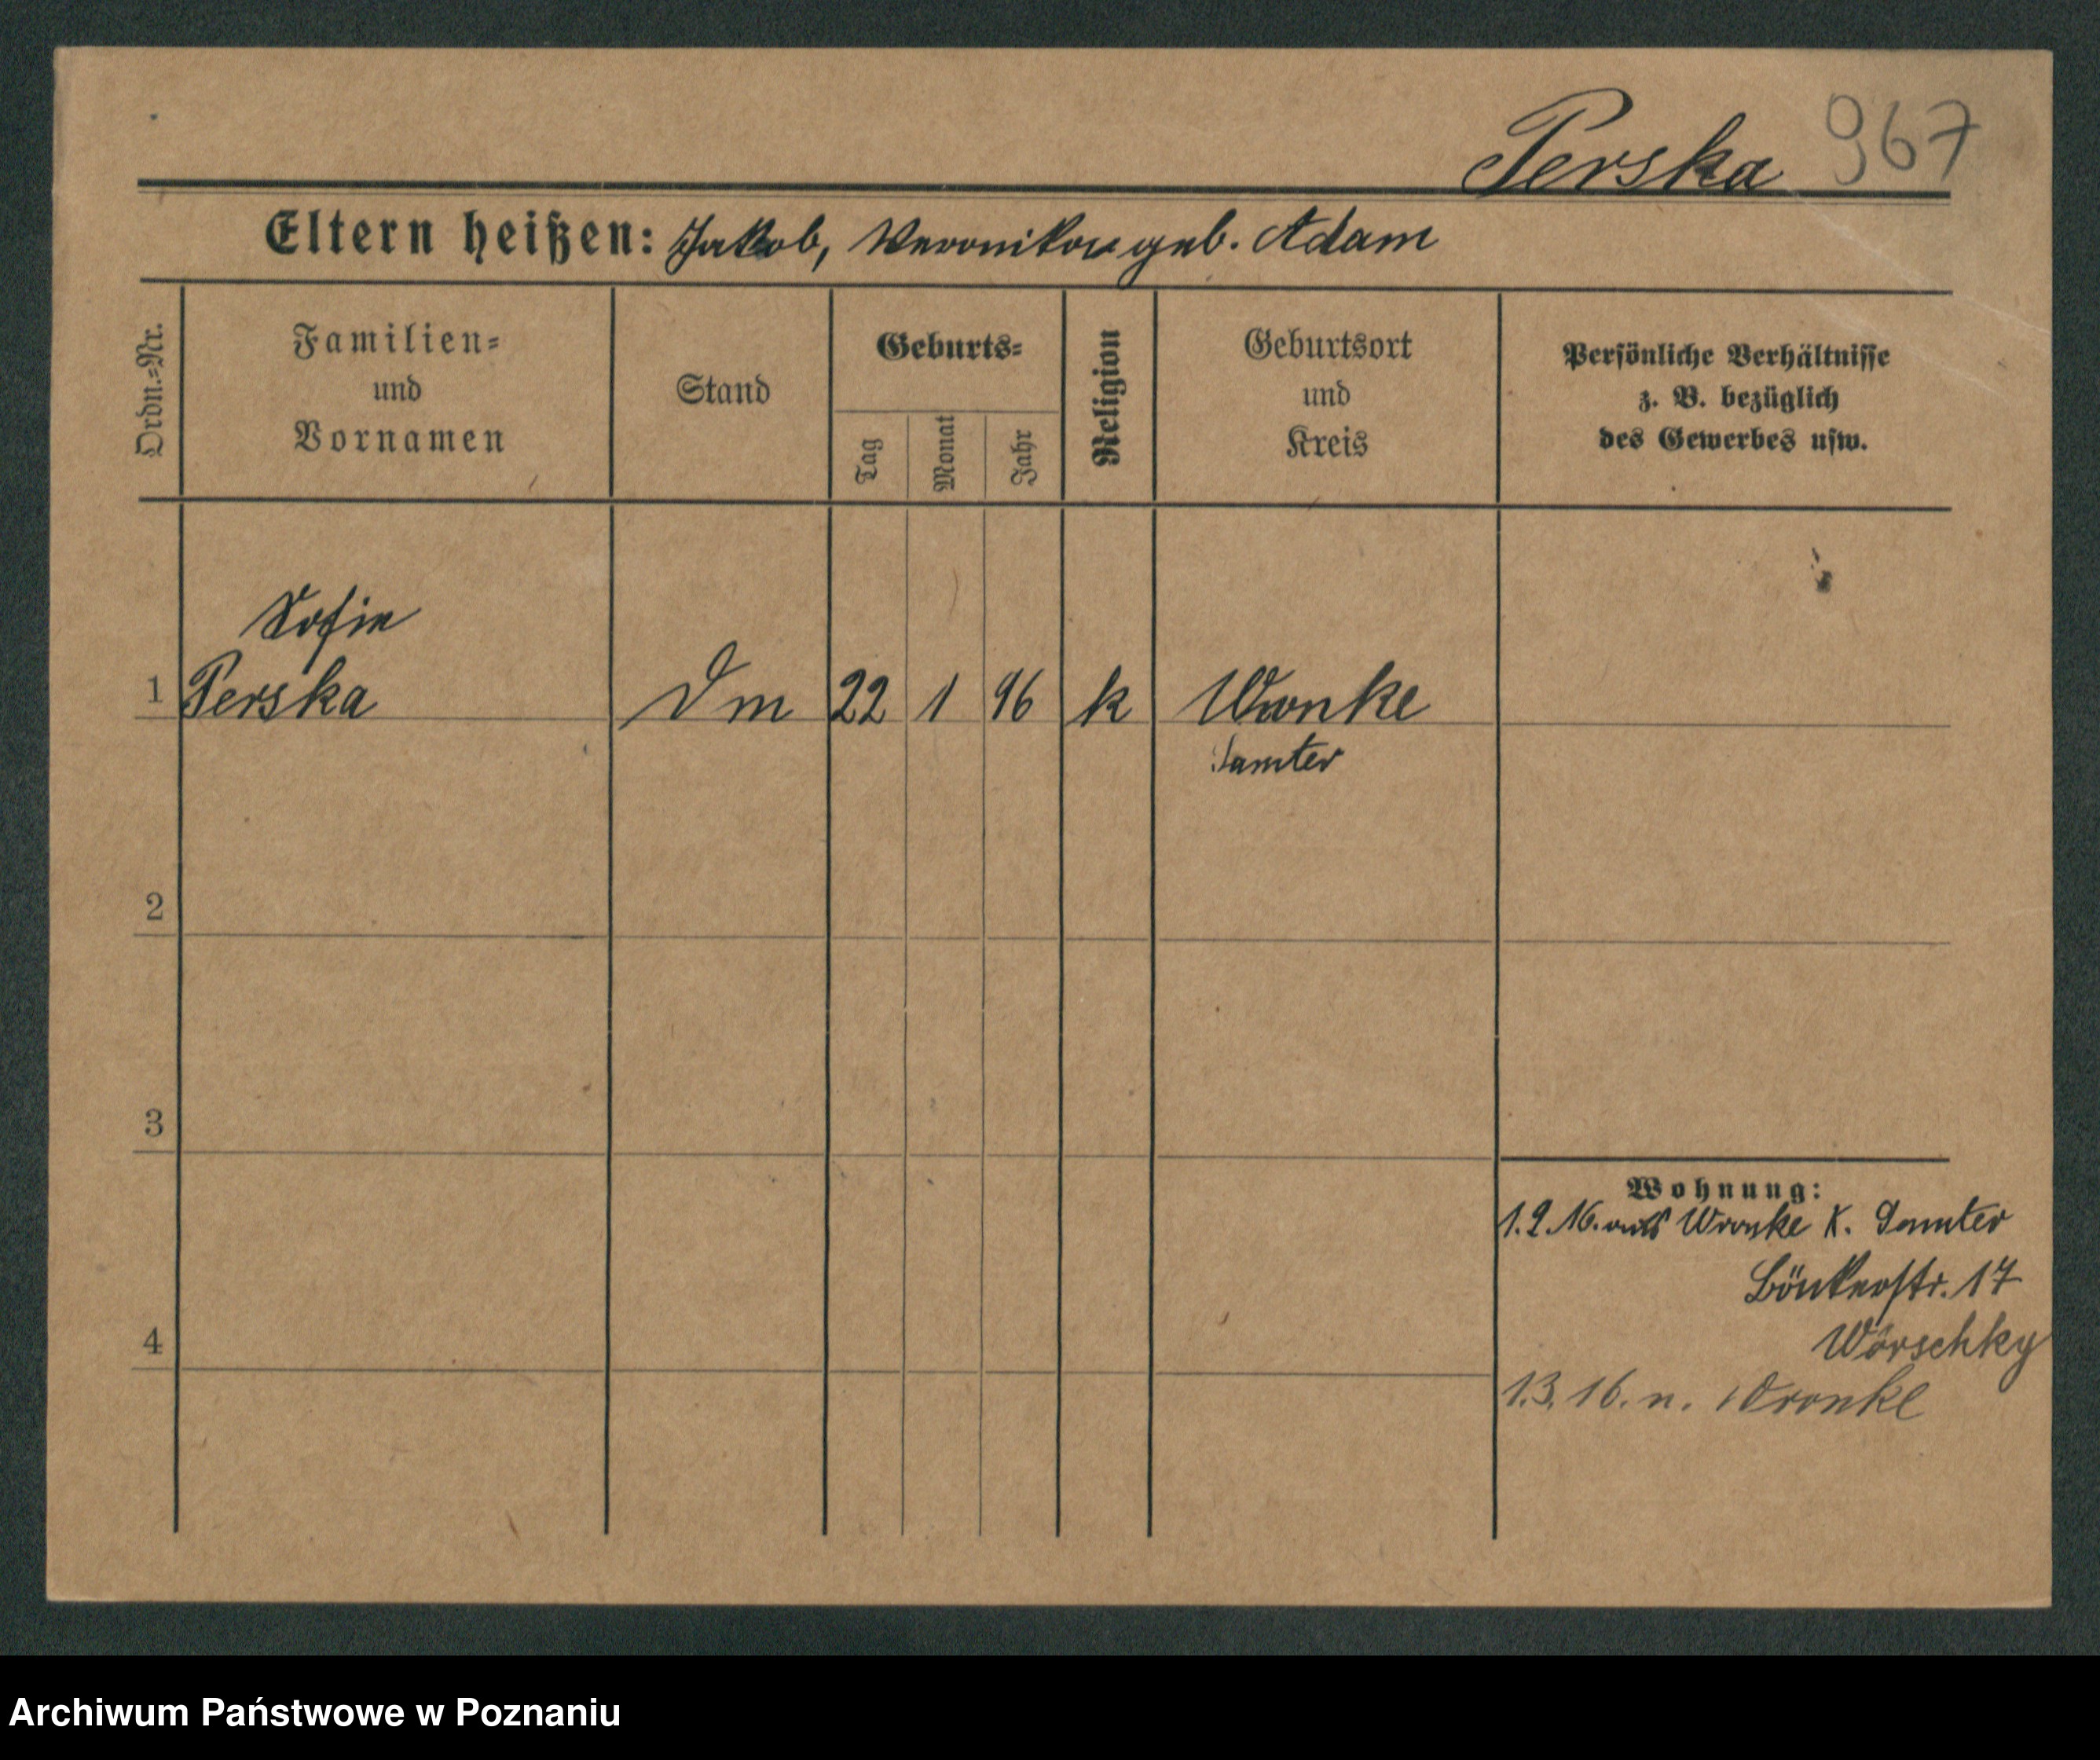 Perska 967
Eltern heißen: Jakob, Veronika geb. Adam
Ordn.-Nr.
Familien-
und
Vornamen
Stand
Geburts-
Tag
Monat
Jahr
Religion
Geburtsort
und
Kreis
Persönliche Verhältnisse
z. B. bezüglich
des Gewerbes usw.
Sofie
1 Perska Dm 22 1 96 k Wronke
Samter
2
3
4
Wohnung:
1.2.16. aus Wronke K. Samter
Bönkerstr. 17
Worschky
1.3.16. n. Wronke
Archiwum Państwowe w Poznaniu